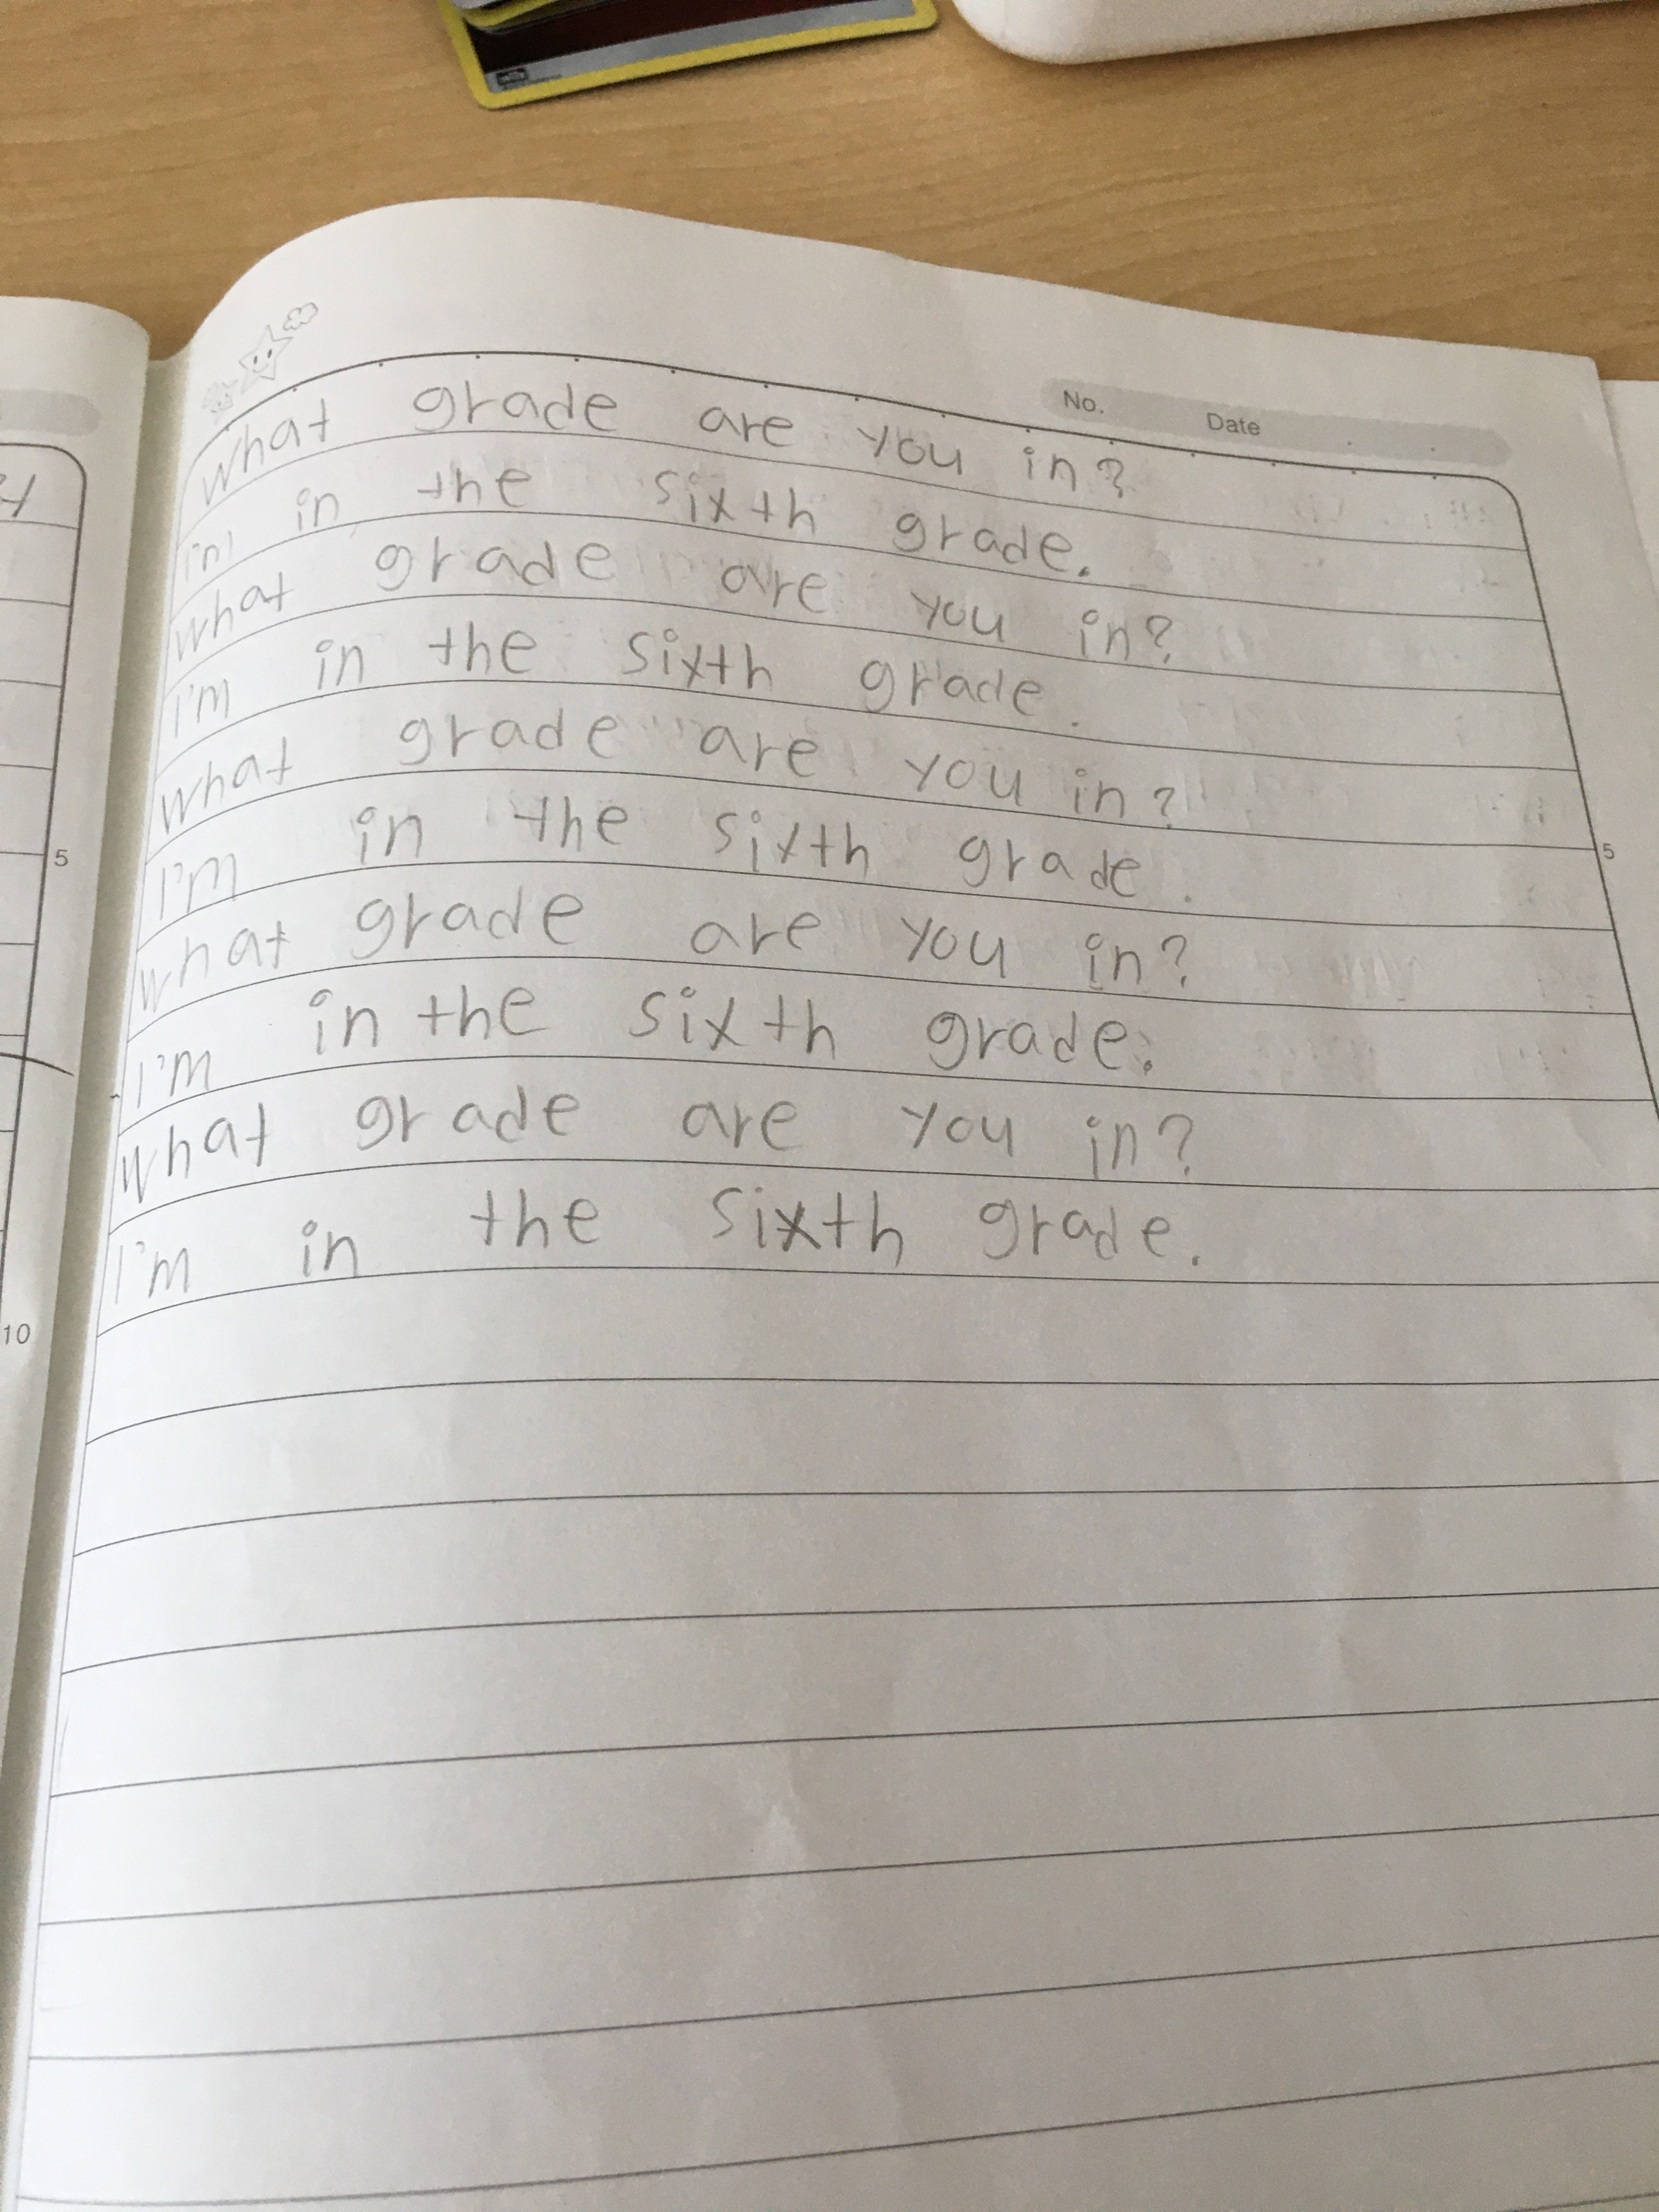 No. Date
What grade are you in?
in the sixth grade.
What grade are you in?
I'm in the sixth grade.
What grade are you in?
I'm in the sixth grade.
What grade are you in?
I'm in the sixth grade.
What grade are you in?
I'm in the sixth grade.
5
10
5